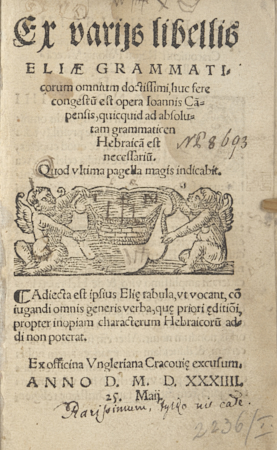 Ex varijs libellis
ELIÆ GRAMMATI-
corum omnium doctissimi, huc fere
congestū est opera Ioannis Cā-
pensis, quicquid ad absolu-
tam grammaticen
Hebraicā est
necessariū.
№ 8693
Quod vltima pagella magis indicabit.
¶Adiecta est ipsius Elię tabula, vt vocant, cō
iugandi omnis generis verba, quę priori editiōi,
propter inopiam characterum Hebraicorū ad-
di non poterat.
Ex officina Vngleriana Cracouię excusum.
ANNO D. M. D. XXXIIII.
25. Maij.
Rarissimum,
2236/I